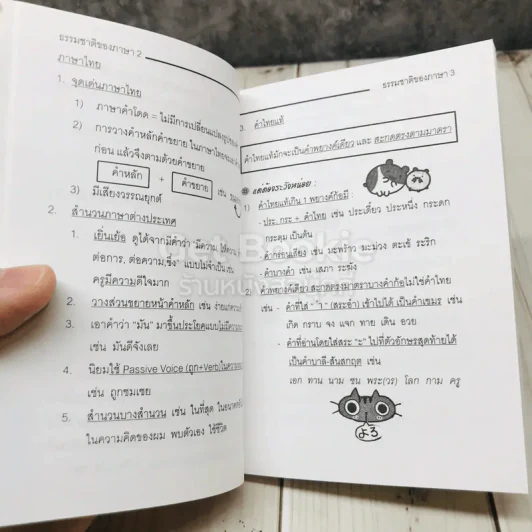 ธรรมชาติของภาษา 2
ภาษาไทย
1. จุดเด่นภาษาไทย
1) ภาษาคำโดด = ไม่มีการเปลี่ยนแปลงรูป
2) การวางคำหลักคำขยาย ในภาษาไทย
ก่อน แล้วจึงตามด้วยคำขยาย
คำหลัก + คำขยาย เช่น
3) มีเสียงวรรณยุกต์
2. สำนวนภาษาต่างประเทศ
1. เยิ่นเย้อ ดูได้จากมีคำว่า "มีความ, ให้ความ
ต่อการ, ต่อความ,ซึ่ง" แบบไม่จำเป็น เช่น
ครูมีความดีใจมาก
2. วางส่วนขยายหน้าคำหลัก เช่น ง่ายแก่
3. เอาคำว่า "มัน" มาขึ้นประโยคแบบไม่มี
เช่น มันดีจังเลย
4. นิยมใช้ Passive Voice (ถูก+Verb)
เช่น ถูกชมเชย
5. สำนวนบางสำนวน เช่น ในที่สุด ในอนาคต
ในความคิดของผม พบตัวเอง ใช้ชีวิต
ธรรมชาติของภาษา 3
3. คำไทยแท้
คำไทยแท้มักจะเป็นคำพยางค์เดียว และ สะกดตรงตามมาตรา
แต่ต้องระวังหน่อย :
1) คำไทยแท้เกิน 1 พยางค์ก็มี :
- ประ, กระ + คำไทย เช่น ประเดี๋ยว ประหนึ่ง กระดก
กระตุม เป็นต้น
- คำกร่อนเสียง เช่น มะพร้าว ขะม่วง ตะเข้ ระริก
- คำบางคำ เช่น เสภา ระฆัง
2) คำพยางค์เดียว สะกดตรงมาตราบางคำก็อาจไม่ใช่คำไทย
เช่น - คำที่ใส่ "-ำ" (สระอำ) เข้าไปได้ เป็นคำเขมร เช่น
เกิด กราบ จง แจก ทาย เดิน อวย
- คำที่อ่านโดยใส่สระ "ะ" ไปที่ตัวอักษรสุดท้ายได้
เป็นคำบาลี-สันสกฤต เช่น
เอก ทาน นาม ชน พระ(วร) โลก กาม ครู
よろ
Get Bookie
ร้านหนัง